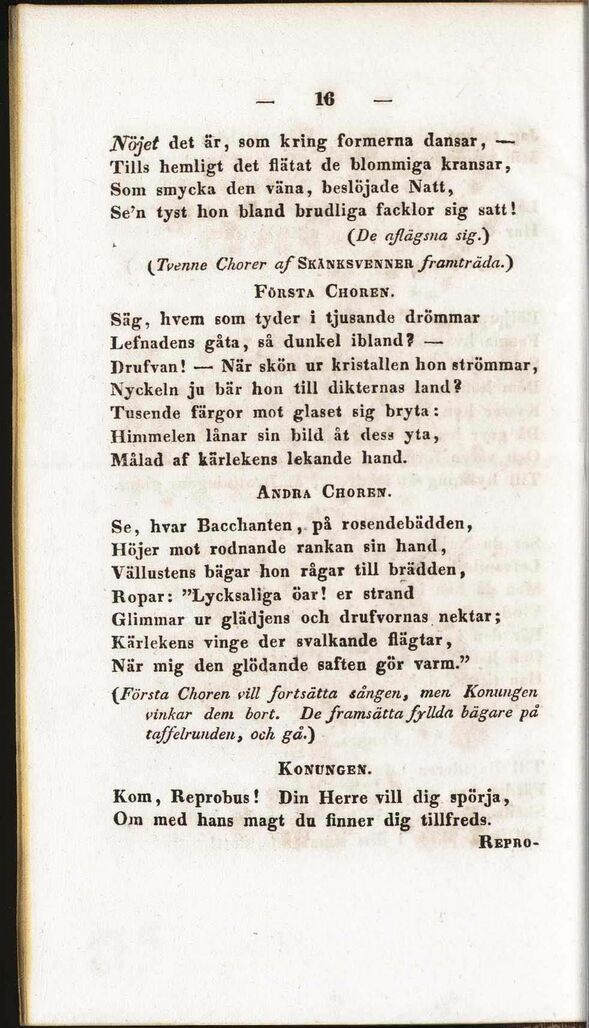 — 16 —
Nöjet det är, som kring formerna dansar, —
Tills hemligt det flätat de blommiga kransar,
Som smycka den väna, beslöjade Natt,
Se'n tyst hon bland brudliga facklor sig satt!
(De aflägsna sig.)
(Tvenne Chorer af SKÄNKSVENNER framträda.)
FÖRSTA CHOREN.
Säg, hvem som tyder i tjusande drömmar
Lefnadens gåta, så dunkel ibland? —
Drufvan! — När skön ur kristallen hon strömmar,
Nyckeln ju bär hon till dikternas land?
Tusende färgor mot glaset sig bryta:
Himmelen lånar sin bild åt dess yta,
Målad af kärlekens lekande hand.
ANDRA CHOREN.
Se, hvar Bacchanten, på rosendebädden,
Höjer mot rodnande rankan sin hand,
Vällustens bägar hon rågar till brädden,
Ropar: ”Lycksaliga öar! er strand
Glimmar ur glädjens och drufvornas nektar;
Kärlekens vinge der svalkande flägtar,
När mig den glödande saften gör varm.”
(Första Choren vill fortsätta sången, men Konungen
vinkar dem bort. De framsätta fyllda bägare på
taffelrunden, och gå.)
KONUNGEN.
Kom, Reprobus! Din Herre vill dig spörja,
Om med hans magt du finner dig tillfreds.
REPRO-